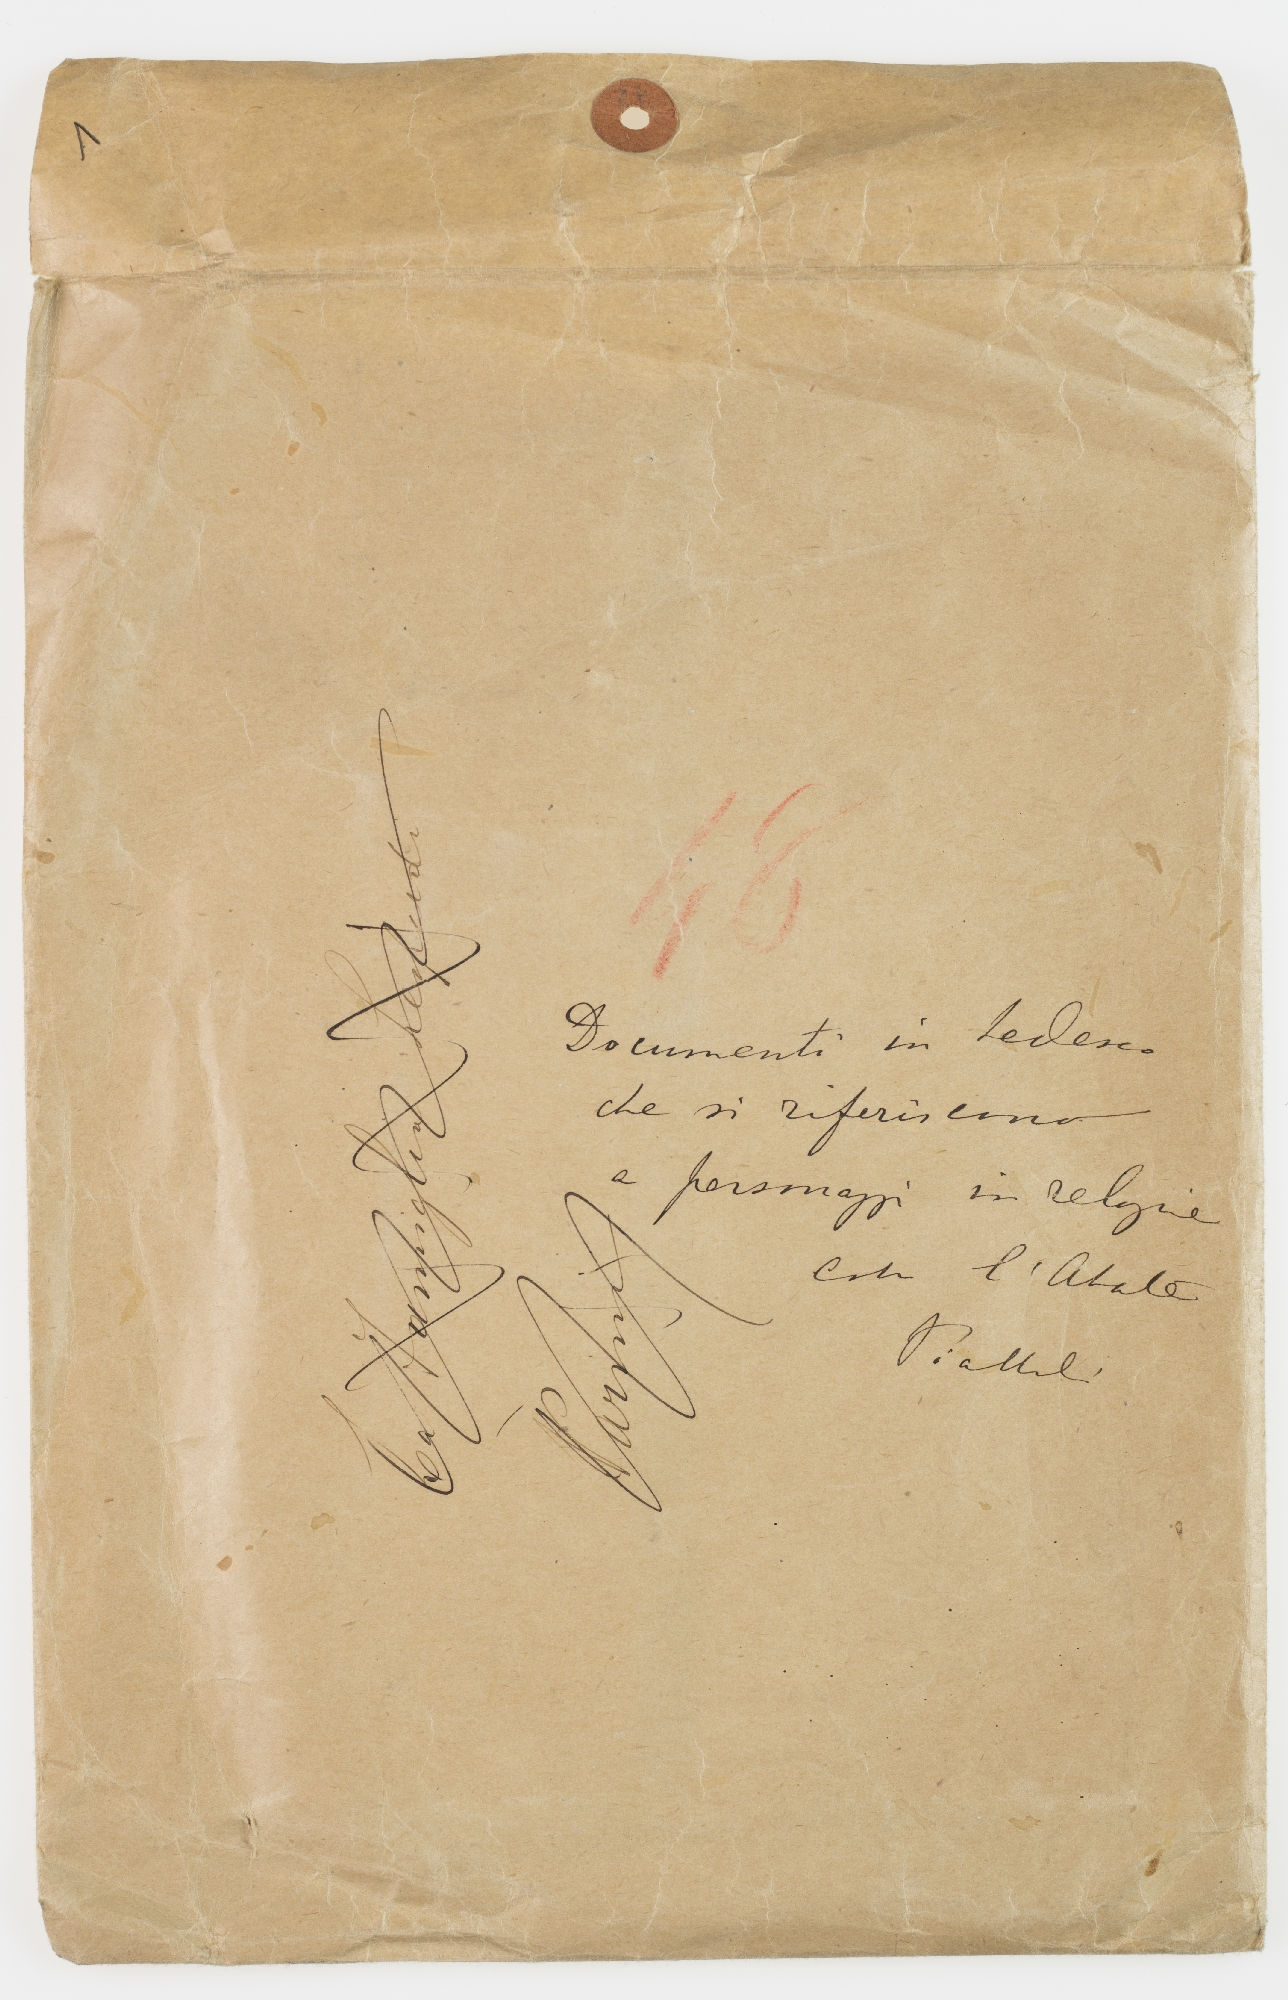 1
48
Documenti in tedesco
che si riferiscono
a personaggi in relazione
con l'Abate
Piattoli
La Famiglia